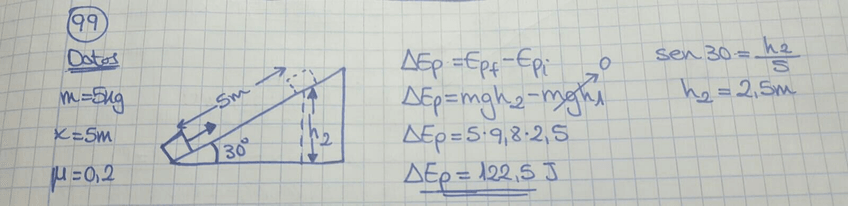 99
Datos
m=5kg
x=5m
μ=0,2
5m
30°
h2
ΔEp=Epf-Epi
ΔEp=mgh2-mgh1 0
ΔEp=5·9,8·2,5
ΔEp=122,5 J
sen30=h2/5
h2=2,5m